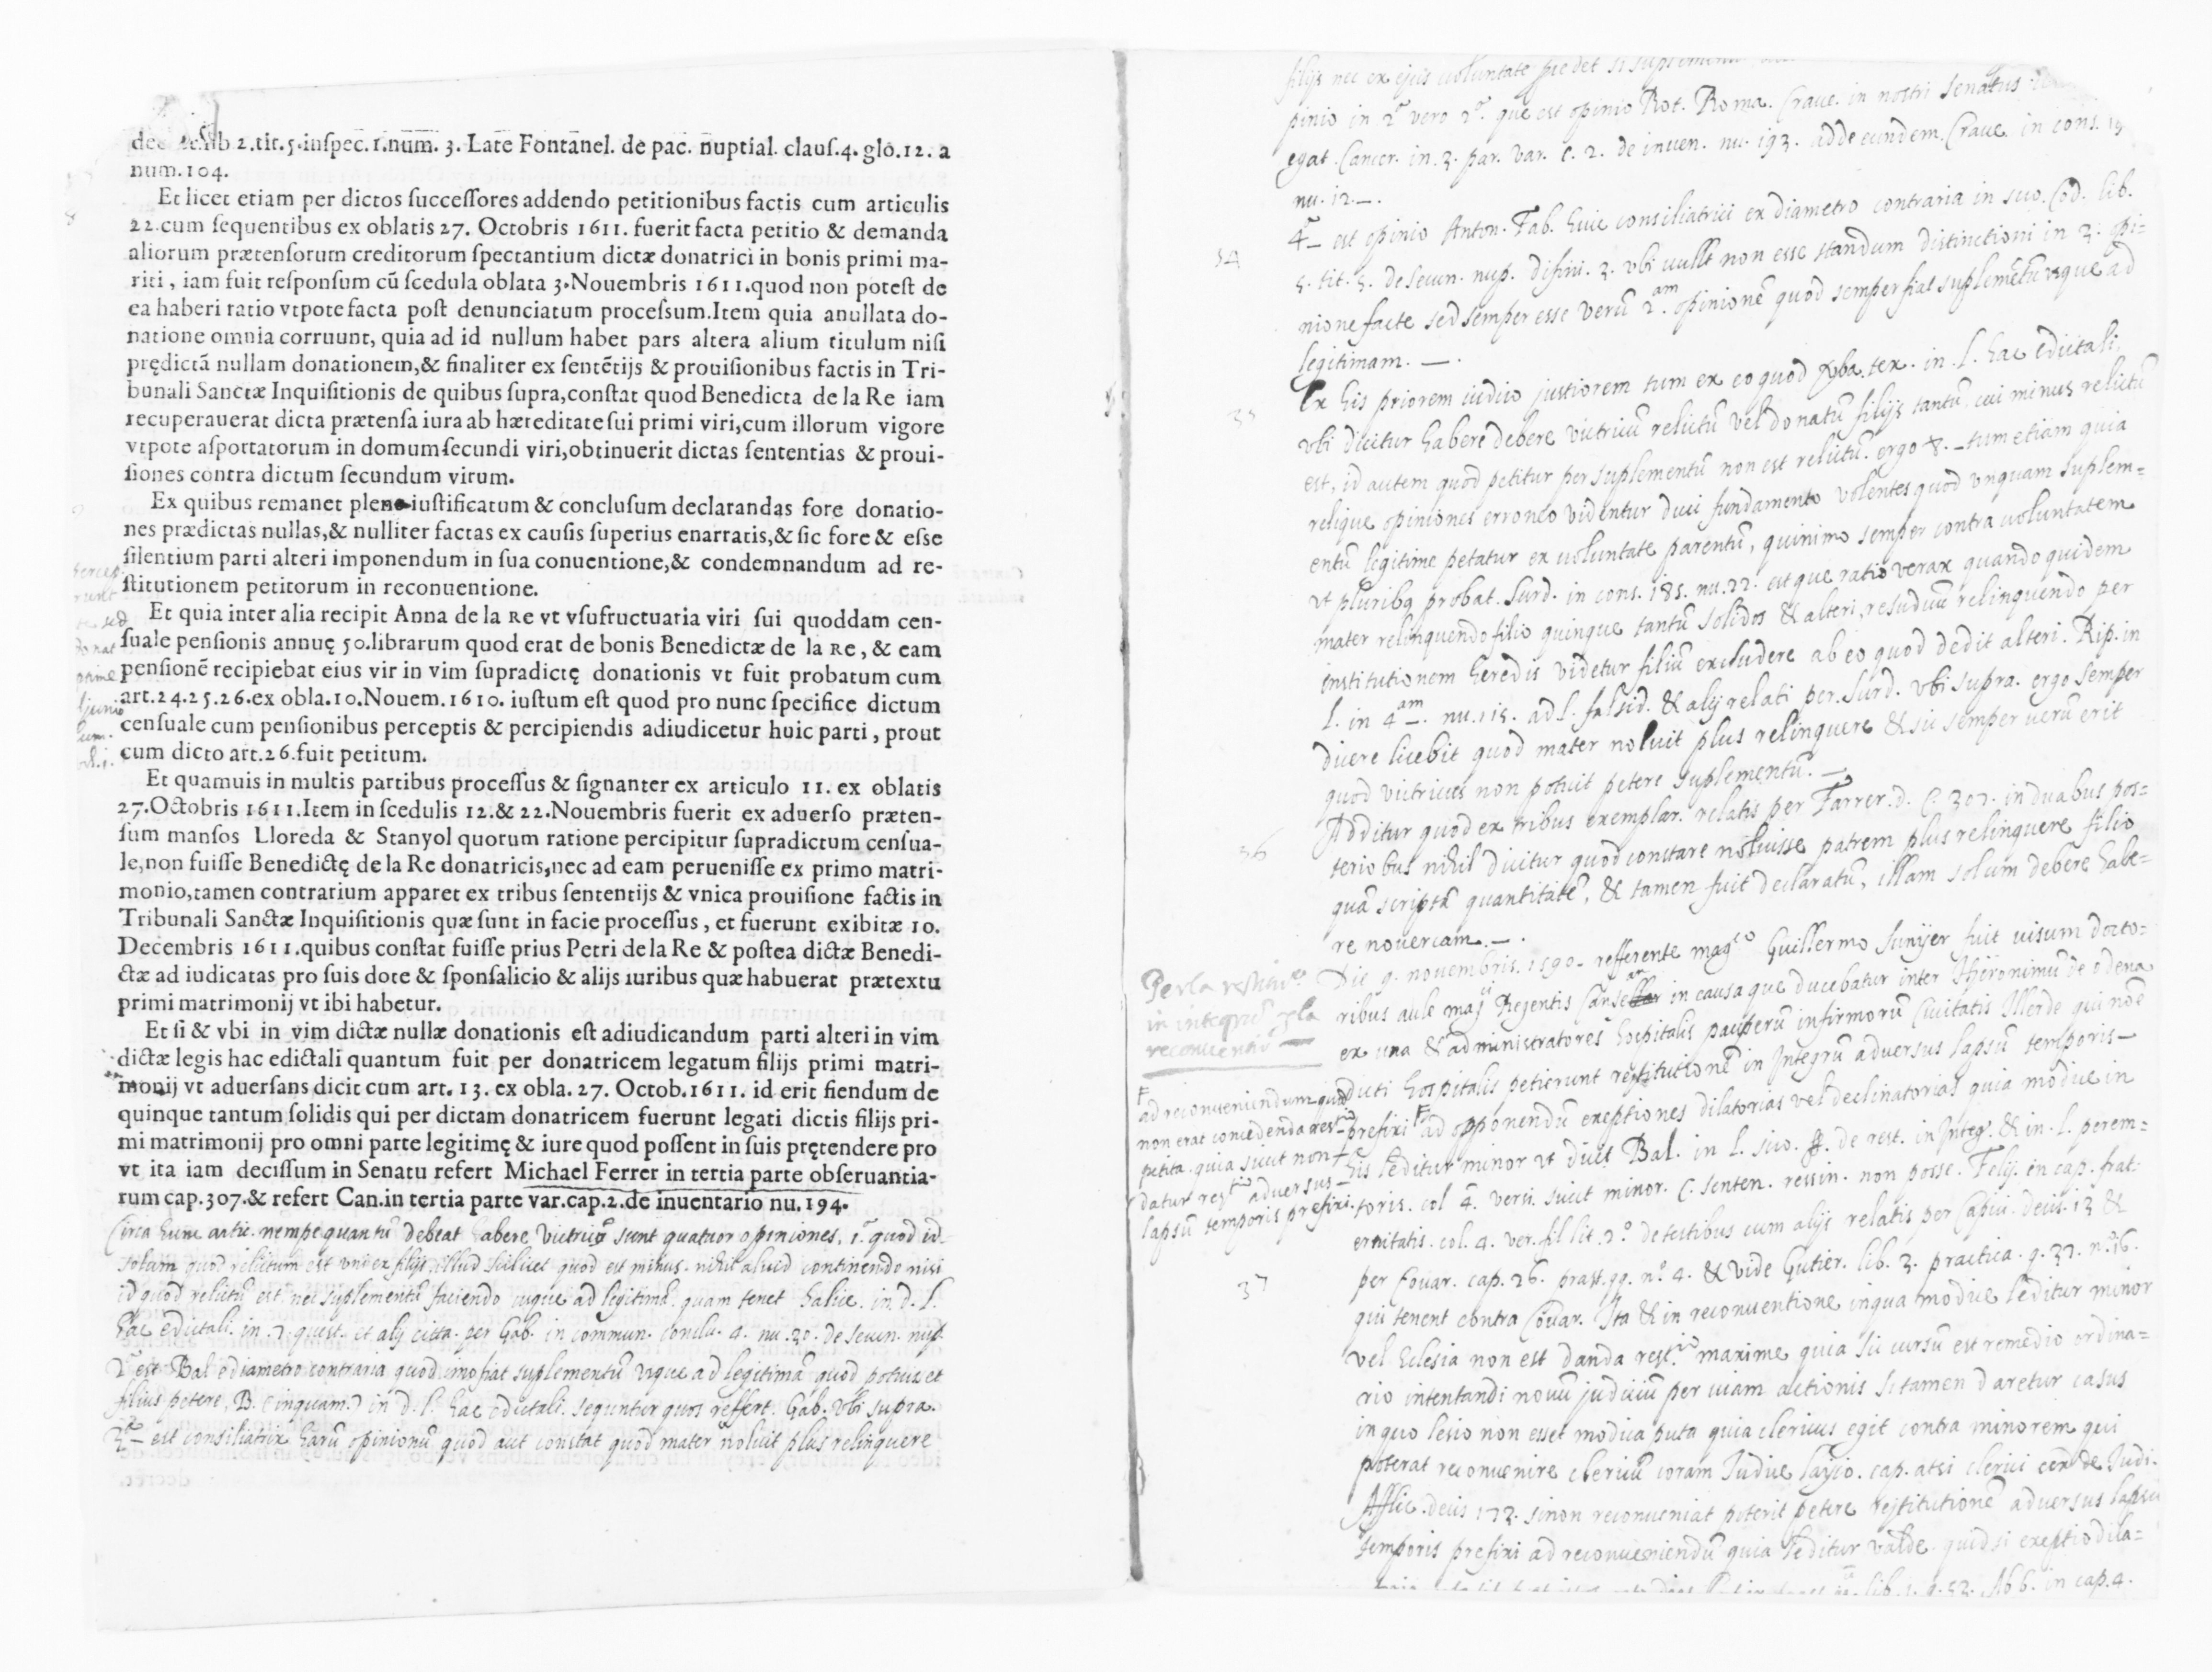 lib 2.tit.5.inspec.1.num. 3. Late Fontanel. de pac. nuptial. claus.4. glo.12. a
num.104.
Et licet etiam per dictos successores addendo petitionibus factis cum articulis
22.cum sequentibus ex oblatis 27. Octobris 1611. fuerit facta petitio & demanda
aliorum prætensorum creditorum spectantium dictæ donatrici in bonis primi ma-
riti, iam fuit responsum cū scedula oblata 3.Nouembris 1611.quod non potest de
ea haberi ratio vtpote facta post denunciatum processum.Item quia anullata do-
natione omnia corruunt, quia ad id nullum habet pars altera alium titulum nisi
prędictā nullam donationem,& finaliter ex sentētijs & prouisionibus factis in Tri-
bunali Sanctæ Inquisitionis de quibus supra,constat quod Benedicta de la Re iam
recuperauerat dicta prætensa iura ab hæreditate sui primi viri,cum illorum vigore
vtpote asportatorum in domum secundi viri,obtinuerit dictas sententias & proui-
siones contra dictum secundum virum.
Ex quibus remanet plene iustificatum & conclusum declarandas fore donatio-
nes prædictas nullas,& nulliter factas ex causis superius enarratis,& sic fore & esse
silentium parti alteri imponendum in sua conuentione,& condemnandum ad re-
stitutionem petitorum in reconuentione.
Et quia inter alia recipit Anna de la Re vt vsufructuaria viri sui quoddam cen-
suale pensionis annuę 50.librarum quod erat de bonis Benedictæ de la Re, & eam
pensionē recipiebat eius vir in vim supradictę donationis vt fuit probatum cum
art.24.25.26.ex obla.10.Nouem.1610. iustum est quod pro nunc specifice dictum
censuale cum pensionibus perceptis & percipiendis adiudicetur huic parti, prout
cum dicto art.26.fuit petitum.
Et quamuis in multis partibus processus & signanter ex articulo 11. ex oblatis
27.Octobris 1611.Item in scedulis 12.& 22.Nouembris fuerit ex aduerso præten-
sum mansos Lloreda & Stanyol quorum ratione percipitur supradictum censua-
le,non fuisse Benedictę de la Re donatricis,nec ad eam peruenisse ex primo matri-
monio,tamen contrarium apparet ex tribus sententijs & vnica prouisione factis in
Tribunali Sanctæ Inquisitionis quæ sunt in facie processus, et fuerunt exibitæ 10.
Decembris 1611.quibus constat fuisse prius Petri de la Re & postea dictæ Benedi-
ctæ ad iudicatas pro suis dote & sponsalicio & alijs iuribus quæ habuerat prætextu
primi matrimonij vt ibi habetur.
Et si & vbi in vim dictæ nullæ donationis est adiudicandum parti alteri in vim
dictæ legis hac edictali quantum fuit per donatricem legatum filijs primi matri-
monij vt aduersans dicit cum art. 13. ex obla. 27. Octob.1611. id erit fiendum de
quinque tantum solidis qui per dictam donatricem fuerunt legati dictis filijs pri-
mi matrimonij pro omni parte legitimę & iure quod possent in suis prętendere pro
vt ita iam decissum in Senatu refert Michael Ferrer in tertia parte obseruantia-
rum cap.307.& refert Can.in tertia parte var.cap.2.de inuentario nu.194.
Circa hunc artic. nempe quantū debeat habere victricus sunt quatuor opiniones, 1.ª quod id
solum quod relictum est vni ex filijs, illud scilicet quod est minus. nihil aliud continendo nisi
id quod relictū est nec suplementū faciendo usque ad legitimā. quam tenet Salic. in. d. l.
hac edictali. in .7. quest. et alij citta. per Gab. in commun. conclu. 4. nu. 30. de secun. nup.
2ª est Bal e diametro contraria quod imo fiat suplementū vsque ad legitimā quod potuit et
filius petere, B. in d. l. hac edictali. sequntur quos reffert. Gab. vbi supra.
3ª est consiliatrix harū opinionū quod aut constat quod mater noluit plus relinquere
filijs nec ex ejus voluntate
pinio in 2ª vero 2ª. que est opinio Rot. Roma. Crauc. in nostri senatus
Cancer. in. 3. par. var. c. 2. de inuen. nu. 193. adde eundem. Craue in cons.
nu. 12. —.
34
4ª est opinio Anton. Fab. huic consiliatrici ex diametro contraria in suo. Cod. lib.
5. tit. 5. de secun. nup. difini. 3. vbi uullt non esse standum distinctioni in 3. opi=
nione facte sed semper esse verū 2.am opinionē quod semper fiat suplemētū vsque ad
legitimam. —.
35
Ex his priorem iudico justiorem tum ex eo quod tex. in. l. hac edictali,
vbi dicitur habere debere victricū relictū vel donatū filijs tantū cui minus relictū
est, id autem quod petitur per suplementū non est relictū. ergo &. — tum etiam quia
relique opiniones erroneo videntur duci fundamento volentes quod vnquam suplem=
entū legitime petatur ex voluntate parentū, quinimo semper contra voluntatem
vt pluribq probat. Surd. in cons. 185. nu. 22. estque ratio verax quandoquidem
mater relinquendo filio quinque tantū solidos & alteri, residuū relinquendo per
institutionem heredis videtur filiū excludere ab eo quod dedit alteri. Rip. in
l. in 4.am nu. 115. ad l. falsid. & alij relati per. Surd. vbi supra. ergo semper
dicere licebit quod mater noluit plus relinquere & sic semper verū erit
quod victricus non potuit petere suplementū. —
36
Additur quod ex tribus exemplar. relatis per Farrer. d. C. 307. in duabus pos=
terio bus nihil dicitur quod constare noluisse patrem plus relinquere filio
quā scriptā quantitatē, & tamen fuit declaratū, illam solum debere habe=
re nouercam. —.
Die 9. nouembris. 1590. refferente mag.co Guillermo Sunyer fuit uisum docto=
ribus aule in causa que ducebatur inter Hieronimū de Odena
ex una & administratores hospitalis pauperū infirmorū Ciuitatis Illerde qui nōe
dicti hospitalis petierunt restitutionē in Integrū aduersus lapsū temporis
prefixi ad opponendū exeptiones dilatorias vel declinatorias quia modice in
his leditur minor vt dicit Bal. in l. suo. ff. de rest. in Integ. & in. l. perem=
toris. col 4. versi. sicut minor. C. senten. rescin. non posse. Felij. in cap. frat:
ernitatis. col. 4. ver. de testibus cum alijs relatis per Capiu. decis. 13 &
per Couar. cap. 26. pract. qq. nº. 4. & vide Gutier. lib. 3. practica. q. 37. n.º 16.
37
qui tenent contra Couar. Ita & in reconuentione in qua modice leditur minor
vel Eclesia non est danda rest.io maxime quia sic cursū est remedio ordina=
rio intentandi nouū judiciū per viam actionis si tamen daretur casus
in quo lesio non esset modica puta quia clericus egit contra minorem qui
poterat reconuenire clericū coram Judice layco. cap. at si clerici de Judi.
Afflic. decis 172. si non reconueniat poterit petere restitutionē aduersus lapsū
temporis prefixi ad reconueniendū quia leditur valde. quid si exeptio dila=
lib. 1. q. 52. Abb. in cap. 4.
Per la restituo
in integrū per la
reconuentio
ad reconueniendum quia
non erat concedenda rest.o
petita. quia sicut non
datur rest.io aduersus
lapsū temporis prefixi.